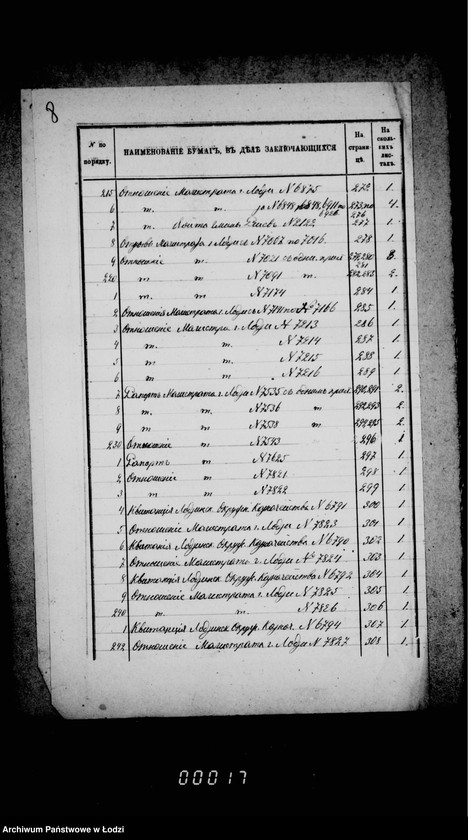 8
№ по порядку.
НАИМЕНОВАНІЕ БУМАГЪ, ВЪ ДѢЛѢ ЗАКЛЮЧАЮЩИХСЯ
На страницѣ.
На сколькихъ листахъ.
215 Отношеніе Магистрата г. Лодзи N 6875 272 1.
6 т. т. 4.
7 т. N 2122 277 1.
8 Магистрата г. Лодзи N 7007 по 7016. 278 1.
9 Отношеніе т. N 7021 3.
220 т. т. N 7091 т. 282,283 2.
1 т. т. N 7174 284 1
2 Отношенія Магистрата г. Лодзи N 7166 285 1.
3 Отношеніе Магистра г. Лодзи N 7213 286 1.
4 т. т. N 7214 287 1
5 т. т. N 7215 288 1.
6 т. т. N 7216 289 1.
7 Рапортъ Магистрата г. Лодзи N 7535 290,291 2.
8 т. т. N 7536 т 292,293 2.
9 т т N 7538 т. 294,295 2.
230 Отношеніе т N 7593 296 1
1 Рапортъ т N 7625 297 1.
2 Отношеніе т N 7821 298 1.
3 т т N 7822 299 1.
4 Квитанція Лодзинск. Округ. Казначейства N 6791 300 1.
5 Отношеніе Магистрата г. Лодзи N 7823 301 1.
6 Квитанія Лодзинск. Округ. Казначейства N 6790 302 1.
7 Отношеніе Магистрата г. Лодзи N 7824 303 1.
8 Квитанція Лодзинск. Округ. Казначейства N 6792 304 1.
9 Отношеніе Магистрата г. Лодзи N 7825 305 1.
240 т. т. N 7826 306 1.
1 Квитанція Лодзинск. Округ. Казнач. N 6794 307 1.
242 Отношеніе Магистрата г. Лодзи N 7827 308 1.
00017
Archiwum Państwowe w Łodzi